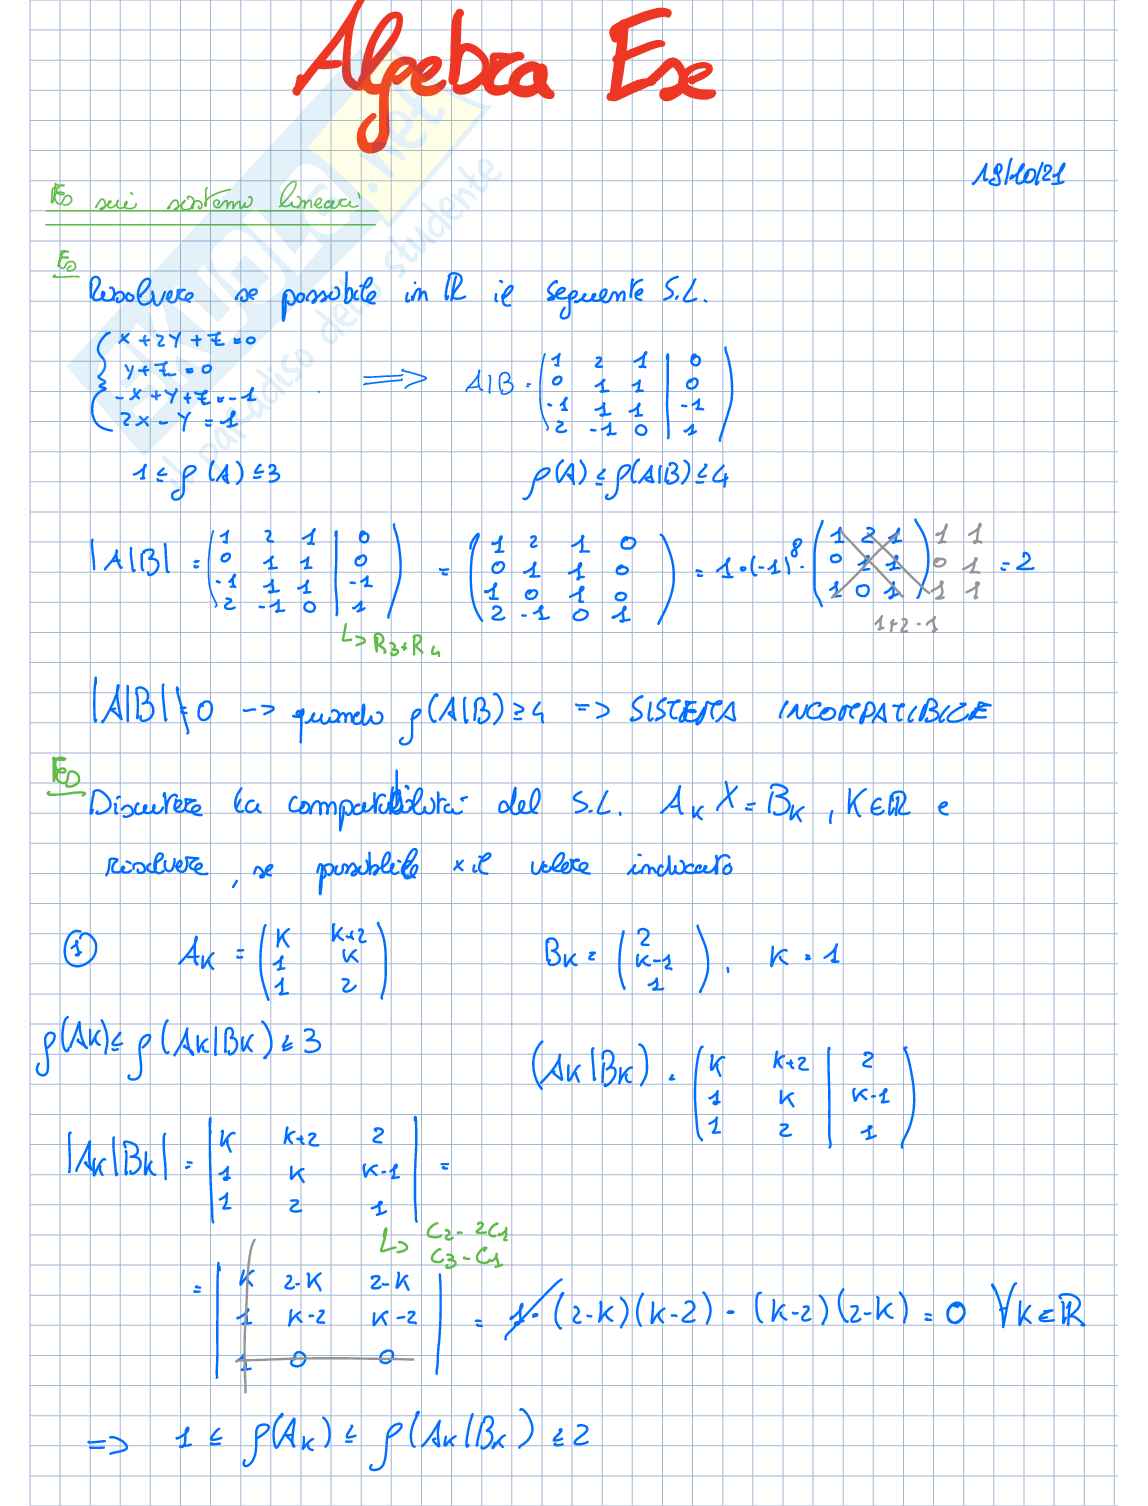 Algebra Ese
19/10/21
Es sui sistemi lineari
Es
Risolvere se possibile in ℝ il seguente S.L.
{ x + 2y + z = 0
y + z = 0
-x + y + z = -1
2x - y = 1
⟹ A|B = ( 1 2 1 | 0
0 1 1 | 0
-1 1 1 | -1
2 -1 0 | 1 )
1 ≤ ρ(A) ≤ 3 ρ(A) ≤ ρ(A|B) ≤ 4
|A|B| = ( 1 2 1 | 0
0 1 1 | 0
-1 1 1 | -1
2 -1 0 | 1 )
= ( 1 2 1 0
0 1 1 0
1 0 1 0
2 -1 0 1 )
= 1·(-1)⁸· ( 1 2 1 ) 1 1
0 1 1 0 1
1 0 1 1 1
= 2
1+2-1
L> R3+R4
|A|B| ≠ 0 -> quando ρ(A|B) ≥ 4 => SISTEMA INCOMPATIBILE
Es
Discutere la compatibilità del S.L. A_K X = B_K , K∈ℝ e
risolvere, se possibile x il valore indicato
① A_K = ( K K+2
1 K
1 2 )
B_K = ( 2
K-1
1 ), K = 1
ρ(A_K) ≤ ρ(A_K|B_K) ≤ 3
(A_K|B_K) = ( K K+2 | 2
1 K | K-1
1 2 | 1 )
|A_K|B_K| = | K K+2 2
1 K K-1
1 2 1 | =
L> C2 - 2C1
C3 - C1
= | K 2-K 2-K
1 K-2 K-2
1 0 0 |
= 1·(2-K)(K-2) - (K-2)(2-K) = 0 ∀K∈ℝ
=> 1 ≤ ρ(A_K) ≤ ρ(A_K|B_K) ≤ 2